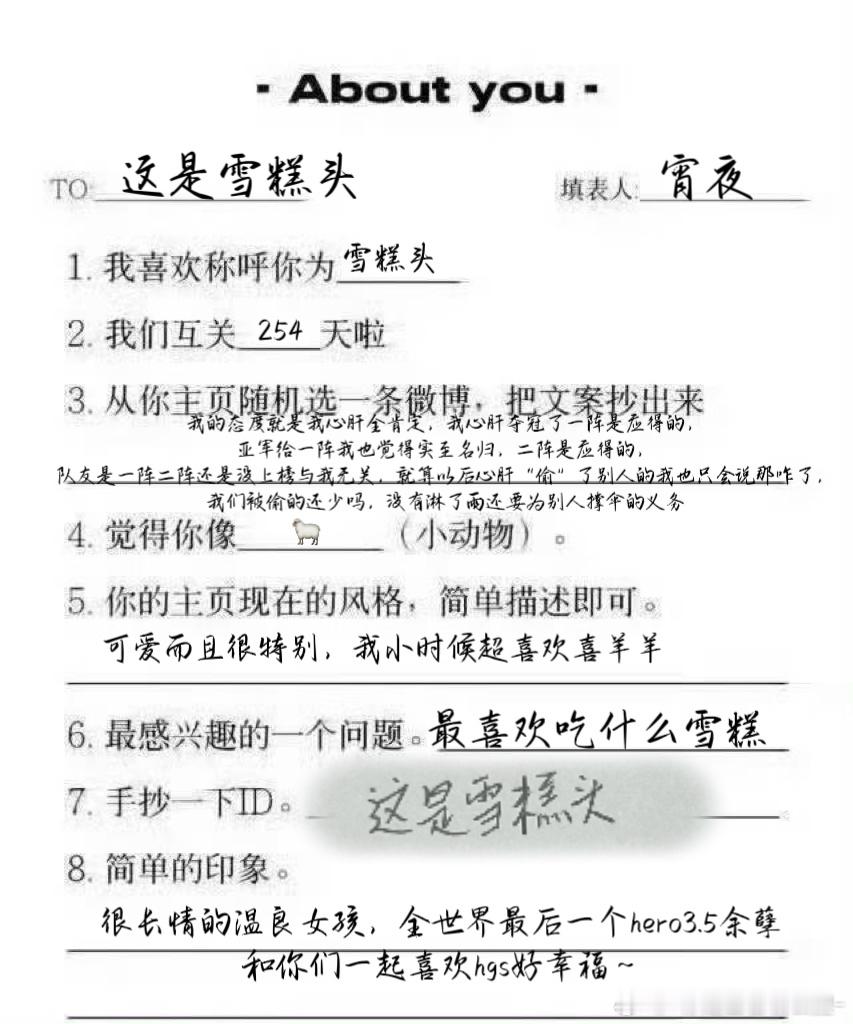 · About you ·
TO: 这是雪糕头 填表人: 宵夜
1. 我喜欢称呼你为 雪糕头
2. 我们互关 254 天啦
3. 从你主页随机选一条微博，把文案抄出来
我的态度就是我心肝全肯定，我心肝夺冠了一阵是应得的，
亚军给一阵我也觉得实至名归，二阵是应得的，
队友是一阵二阵还是没上榜与我无关，就算以后心肝“偷”了别人的我也只会说那咋了，
我们被偷的还少吗，没有淋了雨还要为别人撑伞的义务
4. 觉得你像 🐑 （小动物）。
5. 你的主页现在的风格，简单描述即可。
可爱而且很特别，我小时候超喜欢喜羊羊
6. 最感兴趣的一个问题。最喜欢吃什么雪糕
7. 手抄一下ID。 这是雪糕头
8. 简单的印象。
很长情的温良女孩，全世界最后一个hero3.5余孽
和你们一起喜欢hgs好幸福~